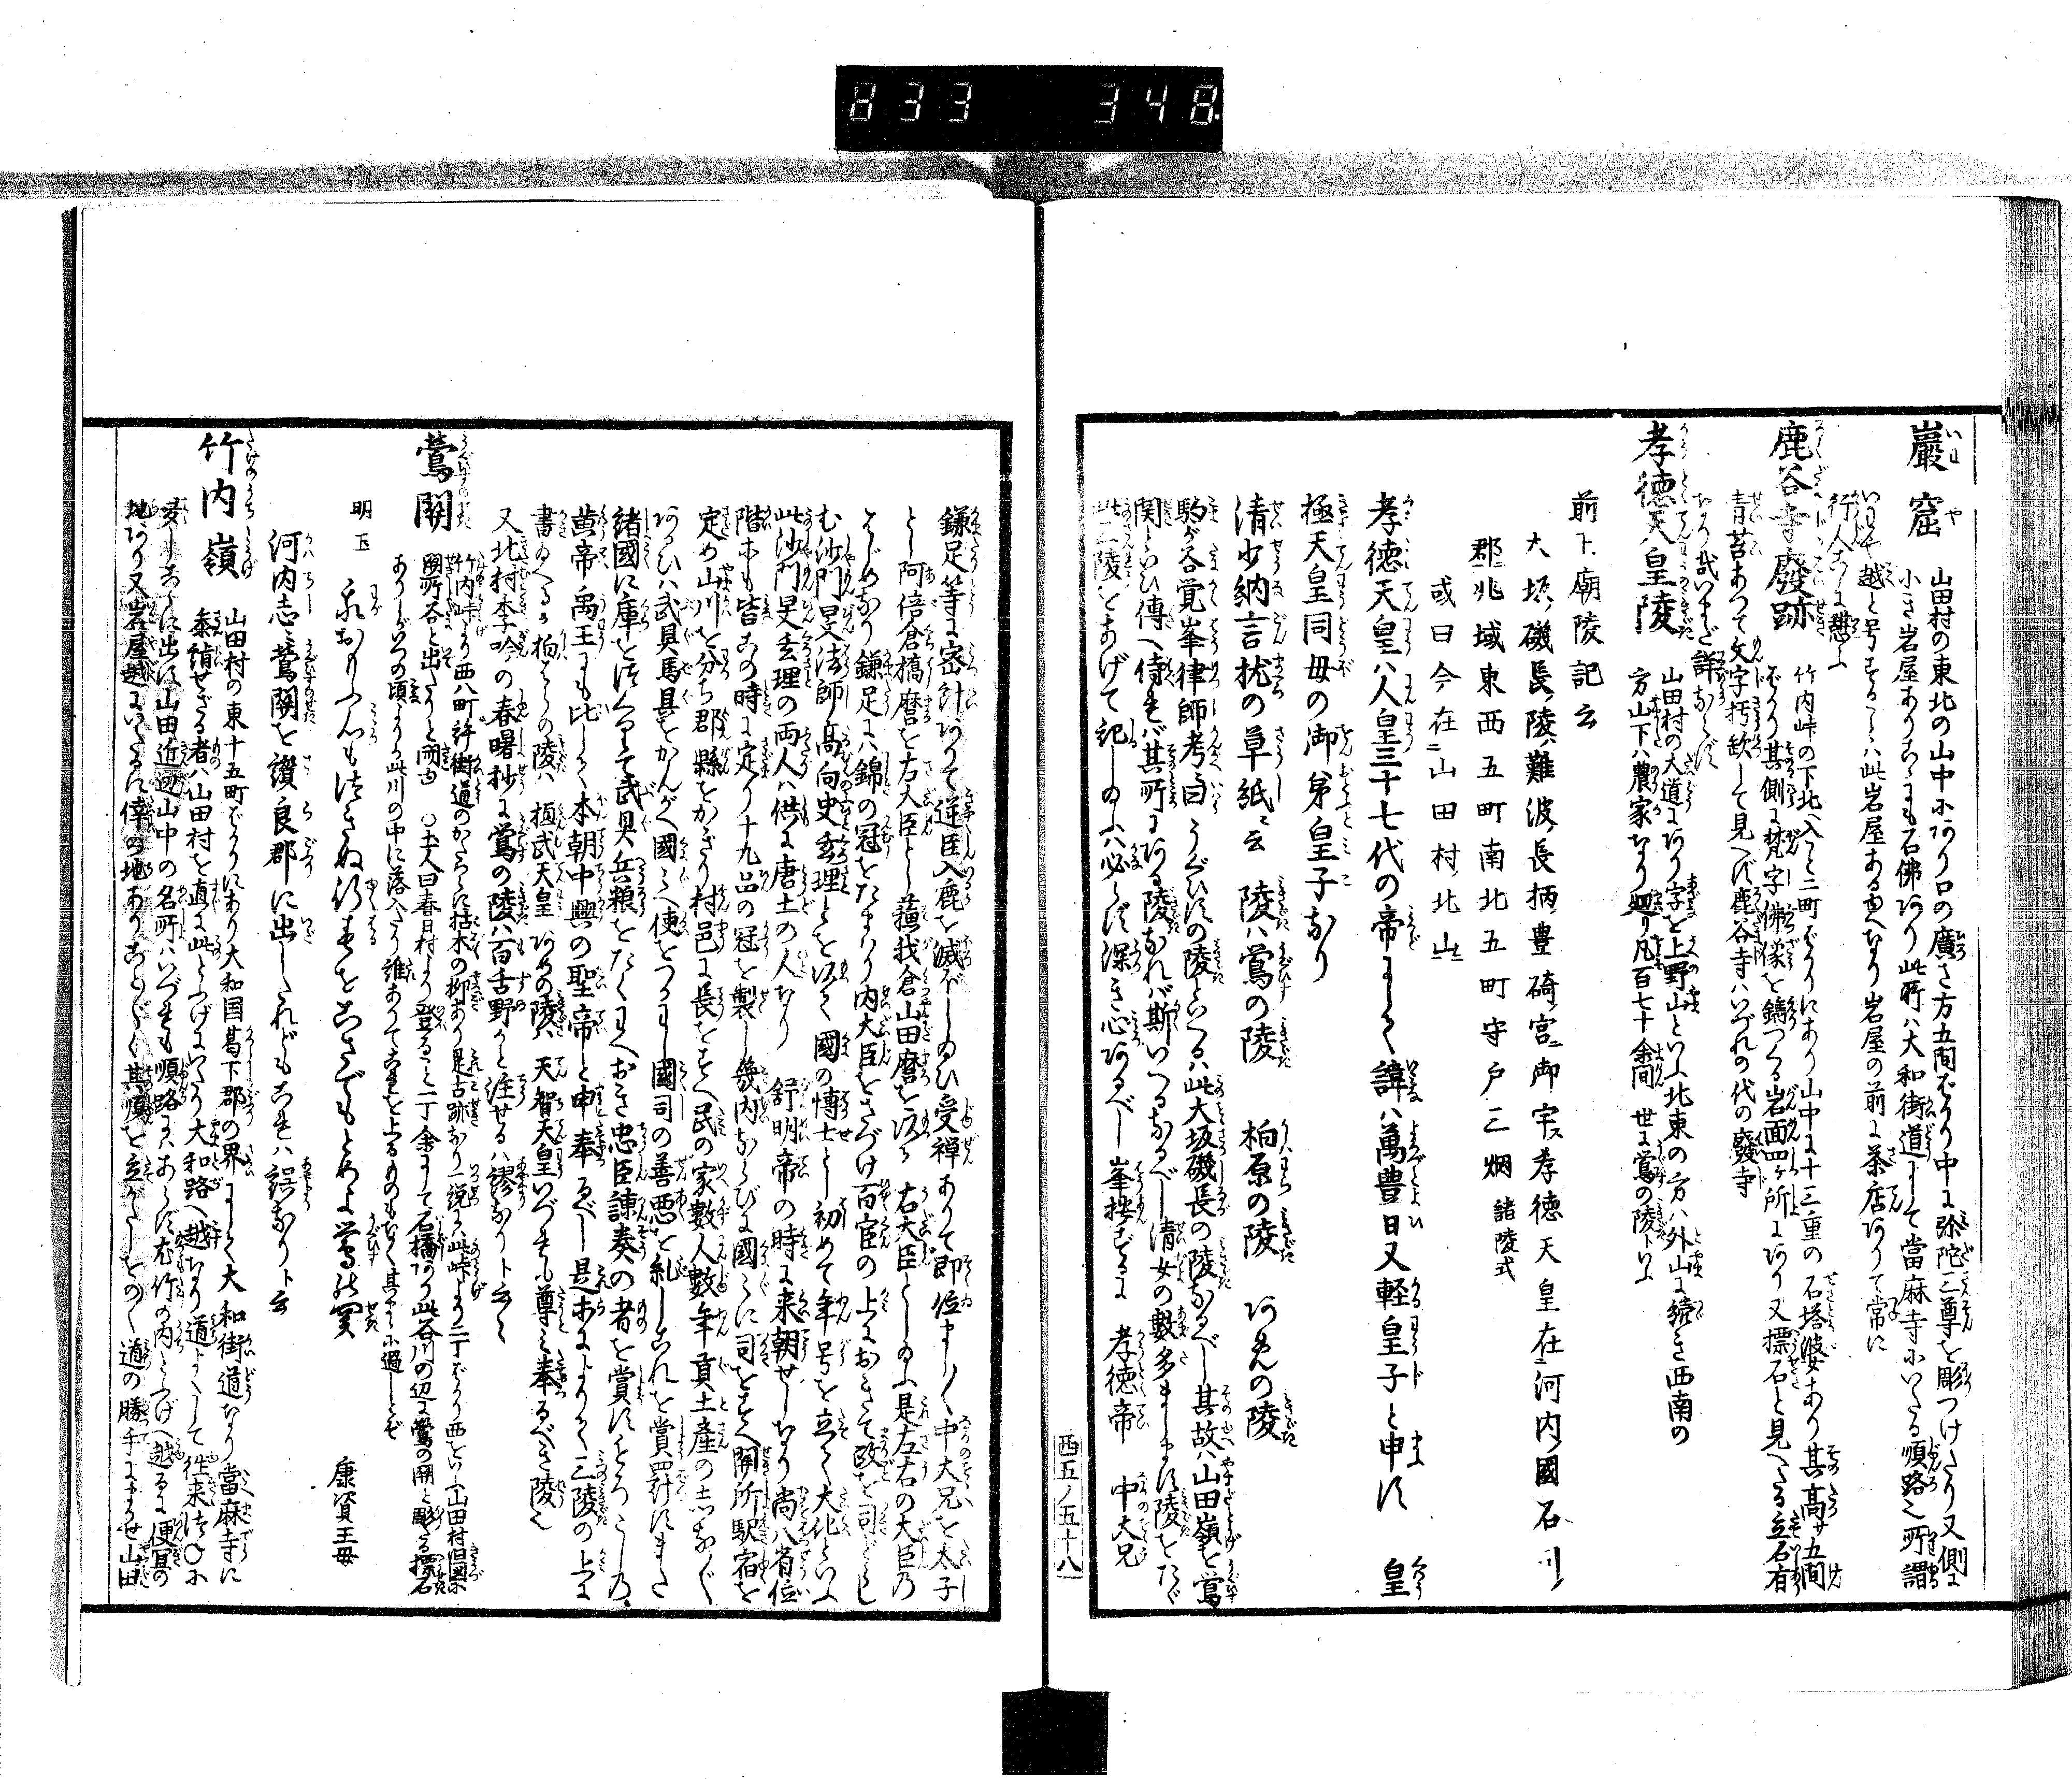 833 348
巖窟 山田村の東北の山中にあり口の廣さ方五間ばかり中に弥陀三尊を彫つけたり又側に
小き岩屋ありこゝにも石佛あり此所ハ大和街道にして當麻寺にいたる順路也所謂
いはや越と号するハ此岩屋あるゆへなり岩屋の前に茶店ありて常に
行人こゝに憩ふ
鹿谷寺廢跡 竹内峠の下北へ入こと二町ばかりにあり山中に十三重の石塔婆あり其高サ五間
ばかり其側に梵字佛像を鐫つくる岩面四ケ所にあり又標石と見へたる立石有
青苔あつて文字朽欽して見へず鹿谷寺ハいづれの代の廢寺
なり哉いまだ詳ならず
孝徳天皇陵 山田村の大道にあり字を上野山といふ北東の方ハ外山に續き西南の
方山下ハ農家なり廻り凡百七十余間 世に鶯の陵トいふ
前ト廟陵記云
大坂磯長陵ハ難波長柄豊碕宮ニ御宇ス孝徳天皇在ニ河内國石川
郡ニ兆域東西五町南北五町守戸三烟 諸陵式
或曰今在ニ山田村北山ニ
孝徳天皇ハ人皇三十七代の帝にして諱ハ萬豊日又軽皇子と申す 皇
極天皇同母の御弟皇子なり
清少納言枕の草紙ニ云 陵ハ鶯の陵 柏原の陵 あめの陵
駒が谷覚峯律師考曰うぐひすの陵といへるハ此大坂磯長の陵なるべし其故ハ山田嶺を鶯
関といひ傳へ侍れバ其所にある陵なれバ斯いへるなるべし清女の數多まします陵をたゞ
此二陵をあげて記し給ふハ必らず深き心あるべし 峯按ずるに 孝徳帝 中大兄
西五ノ五十八
鎌足等に密計ありて逆臣入鹿を滅ぼし給ひ受禅ありて即位まし〳〵中大兄を太子
とし阿倍倉橋麿を左大臣とし蘇我倉山田麿を以て右大臣とし給ふ是左右の大臣乃
はじめなり鎌足にハ錦の冠をたまハり内大臣をさづけ百宦の上におきて政を司どらし
む沙門旻法師高向史玄理とを以て國の博士とし初めて年号を立て大化といふ
此沙門旻玄理の両人ハ供に唐土の人なり 舒明帝の時に来朝せしなり尚八省位
階ホも皆この時に定り十九品の冠を製し幾内ならびに國々に司をすへ関所駅宿を
定め山川を分ち郡縣をかぎり村邑に長をすへ民の家數人數年貢土産のしなく
あるひハ武具馬具をかんがへ國々へ使をつかハし國司の善悪を糺しこれを賞罰すまた
諸國に庫をつくりて武具兵粮をたくわへおき忠臣諌奏の者を賞す
黄帝禹王にも比しく本朝中興の聖帝と申奉るべし是ホによりて三陵の上に
書給へるか柏はらの陵ハ 桓武天皇 あめの陵ハ 天智天皇いづれも尊み奉るべき陵也
又北村季吟の春曙抄に鶯の陵ハ百舌野かと注せるハ謬なりト云々
鶯關 竹内峠より西八町許街道のかたへに枯木の柳あり是古跡なり一説に此峠より二丁ばかり西をいふ山田村
關所谷と出たりと云 ○土人曰春日村より登ること一丁余にして石橋あり此谷川の辺に鶯の関と彫たる標石
ありしがいつの頃よりか此川の中に落入たり誰ありてこれを上るものもなく其まゝに過しとぞ
明玉 我おもふ心もつきぬ行春をこさでもとめよ鶯の関 康資王母
河内志ニ鶯關を讃良郡に出したれどもこれハ誤なりト云
竹内嶺 山田村の東十五町ばかりにあり大和国葛下郡の界にして大和街道なり當麻寺に
參詣せざる者ハ山田村を直に此とうげにいたり大和路へ越なり道よくして往来
山田近辺山中の名所ハいづれも順路にハあらず竹の内とうげへ越るに便宜の
地あり又岩屋越にいたるに倖の地ありことごとく其順を立がたし道の勝手にまかせ山田